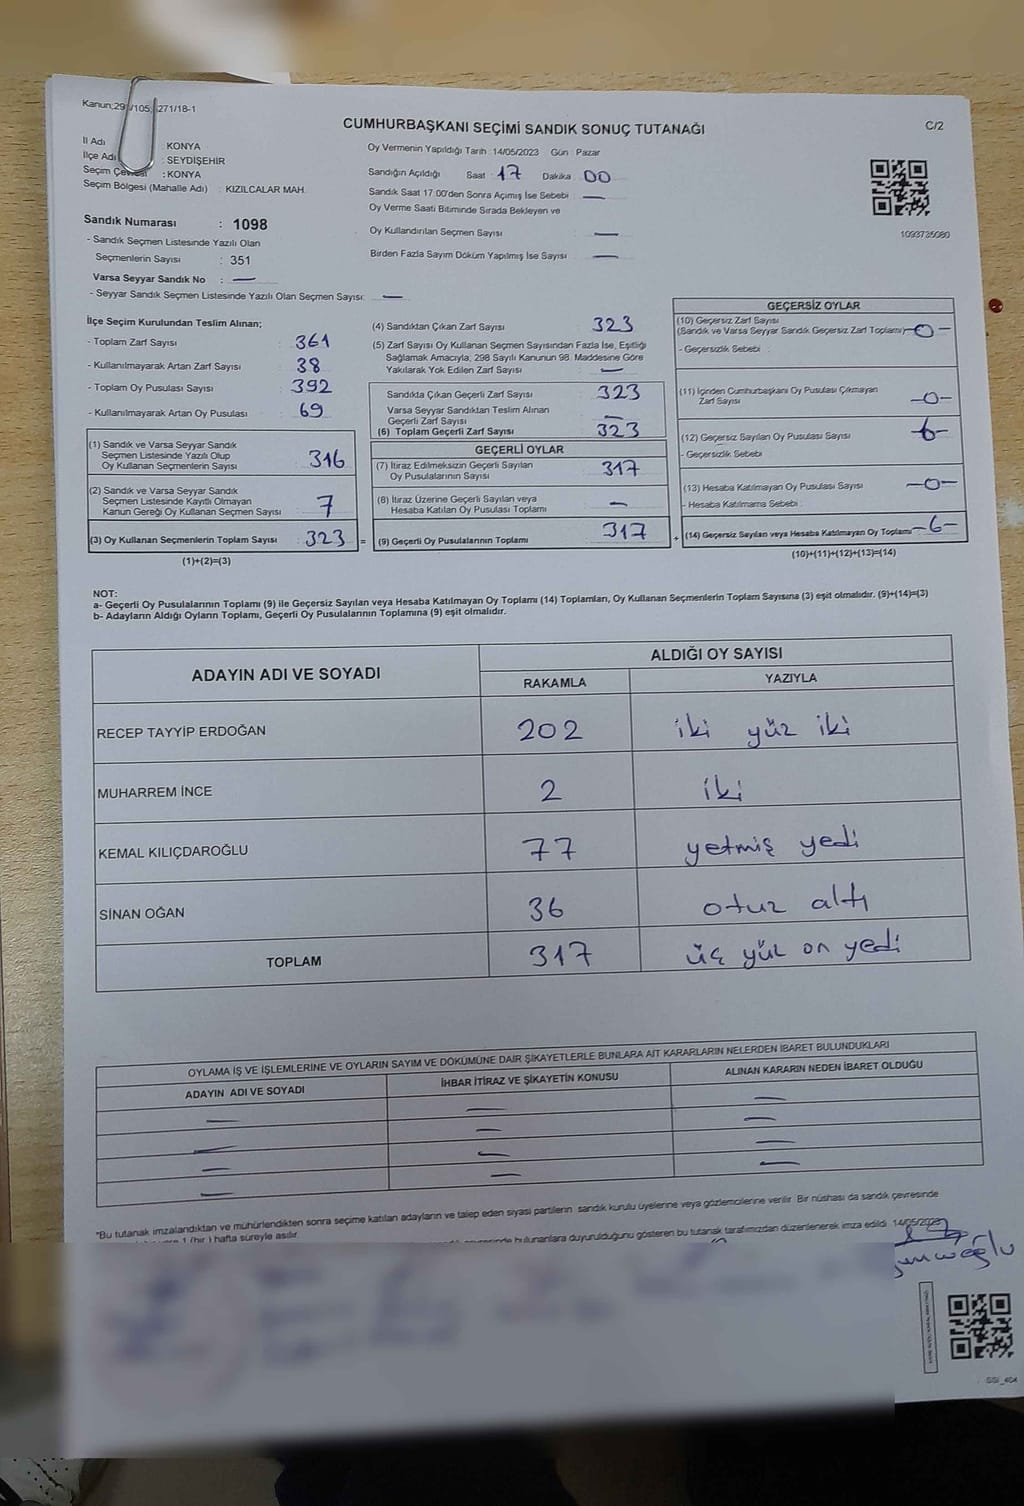 C/2
CUMHURBAŞKANI SEÇİMİ SANDIK SONUÇ TUTANAĞI
İl Adı : KONYA
İlçe Adı : SEYDİŞEHİR
Seçim : KONYA
Seçim Bölgesi (Mahalle Adı) : KIZILCALAR MAH.
Sandık Numarası : 1098
- Sandık Seçmen Listesinde Yazılı Olan
Seçmenlerin Sayısı : 351
Varsa Seyyar Sandık No : —
- Seyyar Sandık Seçmen Listesinde Yazılı Olan Seçmen Sayısı: —
Oy Vermenin Yapıldığı Tarih : 14/05/2023 Gün : Pazar
Sandığın Açıldığı Saat 17 Dakika 00
Sandık Saat 17:00'den Sonra Açımış İse Sebebi —
Oy Verme Saati Bitiminde Sırada Bekleyen ve
Oy Kullandırılan Seçmen Sayısı —
Birden Fazla Sayım Döküm Yapılmış İse Sayısı —
1093735080
İlçe Seçim Kurulundan Teslim Alınan;
- Toplam Zarf Sayısı : 361
- Kullanılmayarak Artan Zarf Sayısı : 38
- Toplam Oy Pusulası Sayısı : 392
- Kullanılmayarak Artan Oy Pusulası : 69
(1) Sandık ve Varsa Seyyar Sandık
Seçmen Listesinde Yazılı Olup
Oy Kullanan Seçmenlerin Sayısı : 316
(2) Sandık ve Varsa Seyyar Sandık
Seçmen Listesinde Kayıtlı Olmayan
Kanun Gereği Oy Kullanan Seçmen Sayısı : 7
(3) Oy Kullanan Seçmenlerin Toplam Sayısı : 323 =
(1)+(2)=(3)
(4) Sandıktan Çıkan Zarf Sayısı : 323
(5) Zarf Sayısı Oy Kullanan Seçmen Sayısından Fazla İse, Eşitliği
Sağlamak Amacıyla, 298 Sayılı Kanunun 98. Maddesine Göre
Yakılarak Yok Edilen Zarf Sayısı : —
Sandıkta Çıkan Geçerli Zarf Sayısı : 323
Varsa Seyyar Sandıktan Teslim Alınan
Geçerli Zarf Sayısı : —
(6) Toplam Geçerli Zarf Sayısı : 323
GEÇERLİ OYLAR
(7) İtiraz Edilmeksizin Geçerli Sayılan
Oy Pusulalarının Sayısı : 317
(8) İtiraz Üzerine Geçerli Sayılan veya
Hesaba Katılan Oy Pusulası Toplamı : —
(9) Geçerli Oy Pusulalarının Toplamı : 317 +
GEÇERSİZ OYLAR
(10) Geçersiz Zarf Sayısı
(Sandık ve Varsa Seyyar Sandık Geçersiz Zarf Toplamı) —0—
- Geçersizlik Sebebi :
(11) İçinden Cumhurbaşkanı Oy Pusulası Çıkmayan
Zarf Sayısı : —0—
(12) Geçersiz Sayılan Oy Pusulası Sayısı : 6—
- Geçersizlik Sebebi
(13) Hesaba Katılmayan Oy Pusulası Sayısı : —0—
- Hesaba Katılmama Sebebi :
(14) Geçersiz Sayılan veya Hesaba Katılmayan Oy Toplamı —6—
(10)+(11)+(12)+(13)=(14)
NOT:
a- Geçerli Oy Pusulalarının Toplamı (9) ile Geçersiz Sayılan veya Hesaba Katılmayan Oy Toplamı (14) Toplamları, Oy Kullanan Seçmenlerin Toplam Sayısına (3) eşit olmalıdır. (9)+(14)=(3)
b- Adayların Aldığı Oyların Toplamı, Geçerli Oy Pusulalarının Toplamına (9) eşit olmalıdır.
ADAYIN ADI VE SOYADI ALDIĞI OY SAYISI
RAKAMLA YAZIYLA
RECEP TAYYİP ERDOĞAN 202 iki yüz iki
MUHARREM İNCE 2 iki
KEMAL KILIÇDAROĞLU 77 yetmiş yedi
SİNAN OĞAN 36 otuz altı
TOPLAM 317 üç yüz on yedi
OYLAMA İŞ VE İŞLEMLERİNE VE OYLARIN SAYIM VE DÖKÜMÜNE DAİR ŞİKAYETLERLE BUNLARA AİT KARARLARIN NELERDEN İBARET BULUNDUKLARI
ADAYIN ADI VE SOYADI İHBAR İTİRAZ VE ŞİKAYETİN KONUSU ALINAN KARARIN NEDEN İBARET OLDUĞU
— — —
— — —
— — —
— — —
*Bu tutanak imzalandıktan ve mühürlendikten sonra seçime katılan adayların ve talep eden siyasi partilerin sandık kurulu üyelerine veya gözlemcilerine verilir. Bir nüshası da sandık çevresinde
1 (bir) hafta süreyle asılır. bulunanlara duyurulduğunu gösteren bu tutanak tarafımızdan düzenlenerek imza edildi. 14/05/2023